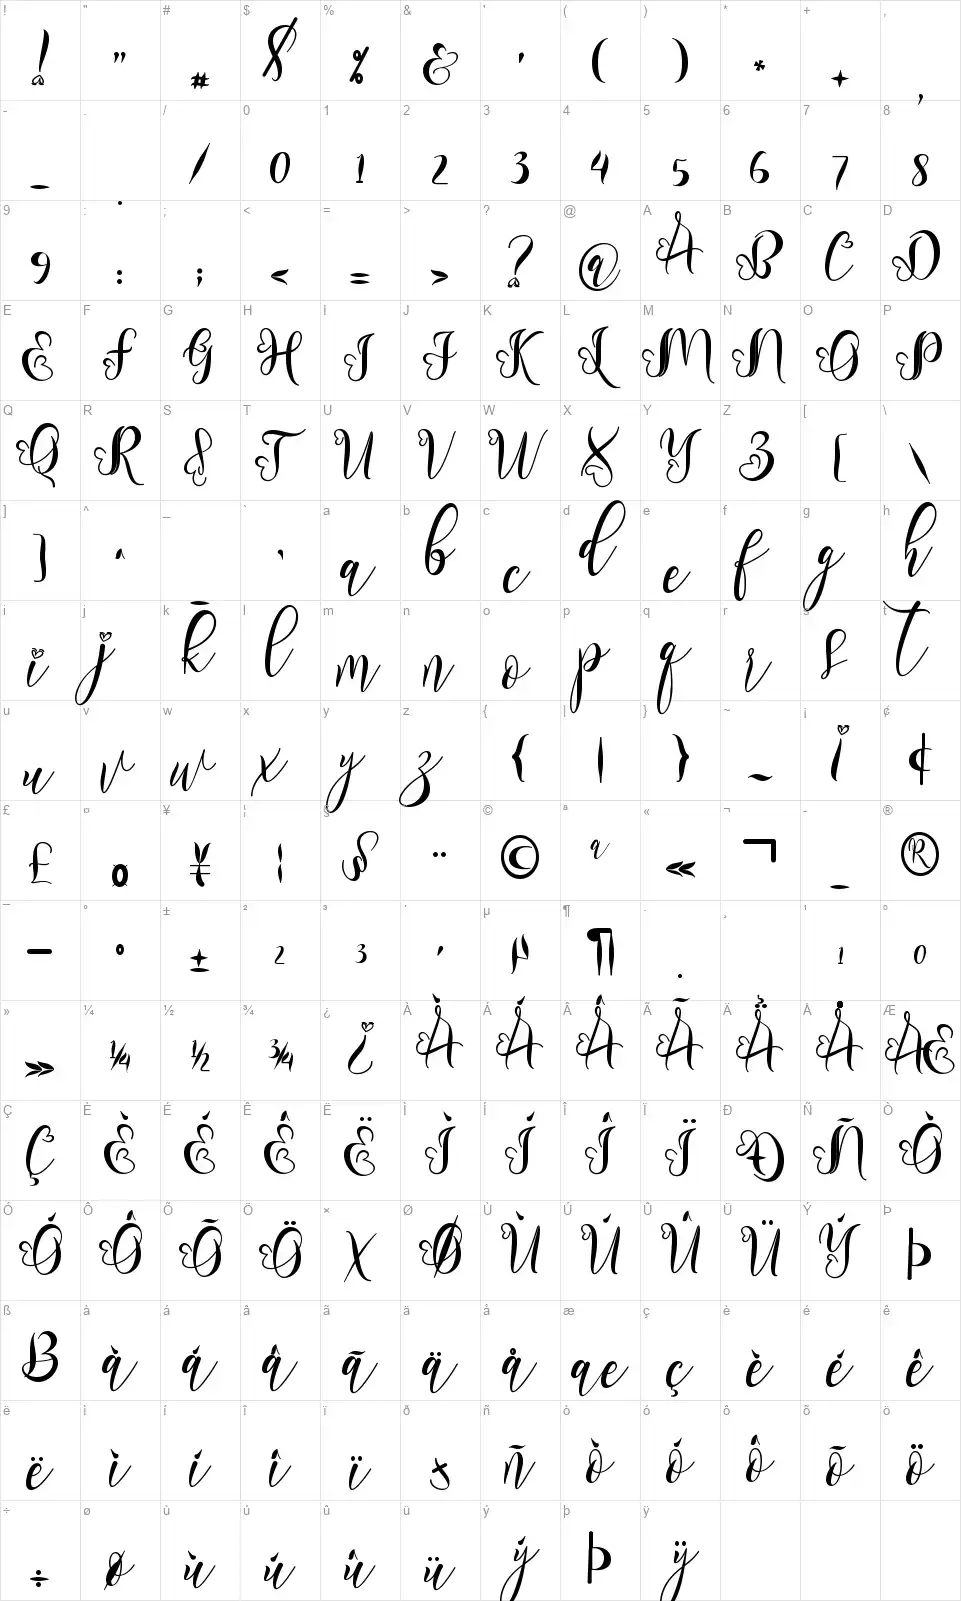 ! " # $ % & ' ( ) * + ,
! " # $ % & ' ( ) * + ,
- . / 0 1 2 3 4 5 6 7 8
- . / 0 1 2 3 4 5 6 7 8
9 : ; < = > ? @ A B C D
9 : ; < = > ? @ A B C D
E F G H I J K L M N O P
E F G H I J K L M N O P
Q R S T U V W X Y Z [ \
Q R S T U V W X Y Z [ \
] ^ _ ` a b c d e f g h
] ^ _ ` a b c d e f g h
i j k l m n o p q r s t
i j k l m n o p q r s t
u v w x y z { | } ~ ¡ ¢
u v w x y z { | } ~ ¡ ¢
£ ¤ ¥ ¦ § ¨ © ª « ¬ - ®
£ ¤ ¥ ¦ § ¨ © ª « ¬ - ®
¯ ° ± ² ³ ´ µ ¶ · ¸ ¹ º
¯ ° ± ² ³ ´ µ ¶ · ¹ º
» ¼ ½ ¾ ¿ À Á Â Ã Ä Å Æ
» ¼ ½ ¾ ¿ À Á Â Ã Ä Å Æ
Ç È É Ê Ë Ì Í Î Ï Ð Ñ Ò
Ç È É Ê Ë Ì Í Î Ï Ð Ñ Ò
Ó Ô Õ Ö × Ø Ù Ú Û Ü Ý Þ
Ó Ô Õ Ö × Ø Ù Ú Û Ü Ý Þ
ß à á â ã ä å æ ç è é ê
ß à á â ã ä å æ ç è é ê
ë ì í î ï ð ñ ò ó ô õ ö
ë ì í î ï ð ñ ò ó ô õ ö
÷ ø ù ú û ü ý þ ÿ
÷ ø ù ú û ü ý þ ÿ